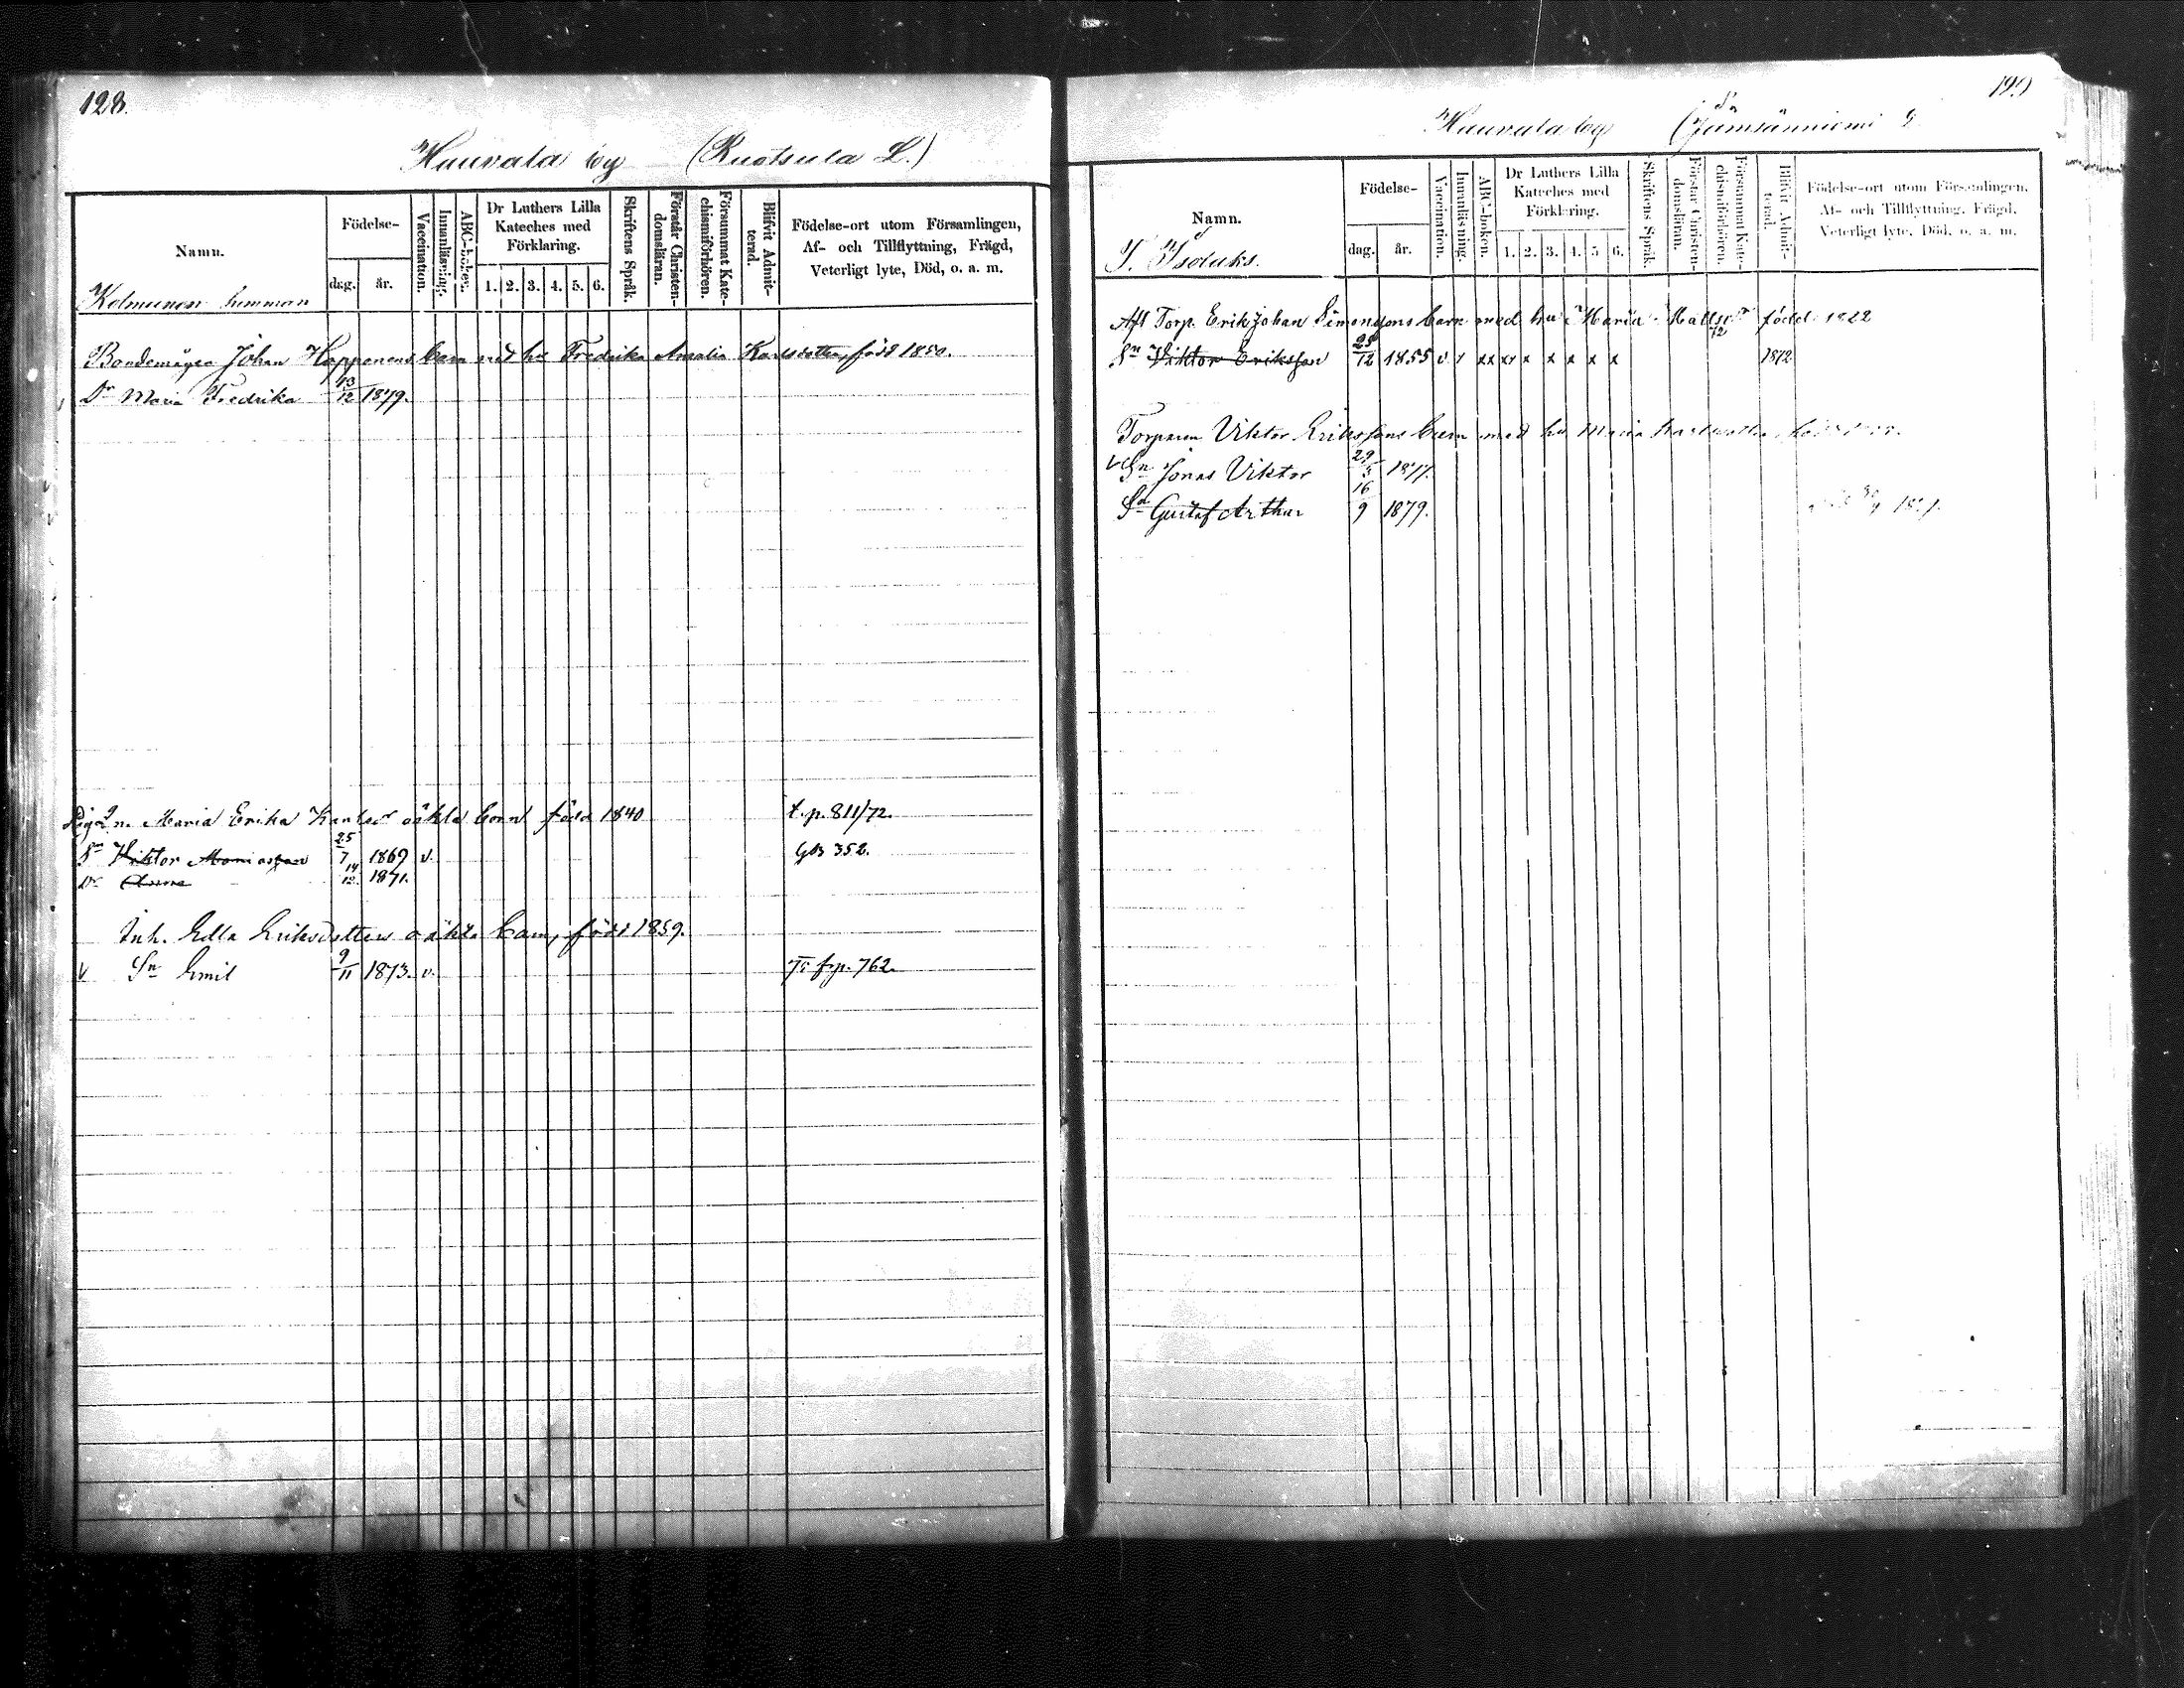 128.
Hauvala by (Ruotsula L.)
Namn.
Födelse-
dag. år.
Vaccination.
Innanläsning.
ABC-boken.
Dr Luthers Lilla Kateches med Förklaring.
1. 2. 3. 4. 5. 6.
Skriftens Språk.
Förstår Christen-domsläran.
Försummat Kate-chismiförhören.
Blifvit Admit-terad.
Födelse-ort utom Församlingen, Af- och Tillflyttning, Frägd, Veterligt lyte, Död, o. a. m.
Kolmunen hemman
Bondemågen Johan Happonens barn med hu Fredrika Amalia Karlsdotter, född 1850.
Dr Maria Fredrika 13/12 1879.
Maria Erika oäkta barn född 1840 t.p. 811/72.
Sn Viktor 25/7 1869 v. 352.
Dr Anna 14/12 1871.
Inh. Edla Eriksdotters oäkta barn, född 1859.
v Sn Emil 9/11 1873. v. 762.
Hauvala by (Jämsänniemi
Namn.
Födelse-
dag. år.
Vaccination.
Innanläsning.
ABC-boken.
Dr Luthers Lilla Kateches med Förklaring.
1. 2. 3. 4. 5 6.
Skriftens Språk.
Förstår Christen-domsläran.
Försummat Kate-chismiförhören.
Blifvit Admit-terad.
Födelse-ort utom Församlingen, Af- och Tillflyttning, Frägd, Veterligt lyte, Död, o. a. m.
Afl Torp. Erik Johan Simonssons barn med hu Maria född 1822
Sn Viktor Eriksson 25/12 1855 v x xx xx x x x x x 1872
Torparen Viktor Erikssons barn med hu Maria
v Sn Jonas Viktor 29/5 1877.
Sn Gustaf Arthur 16/9 1879.